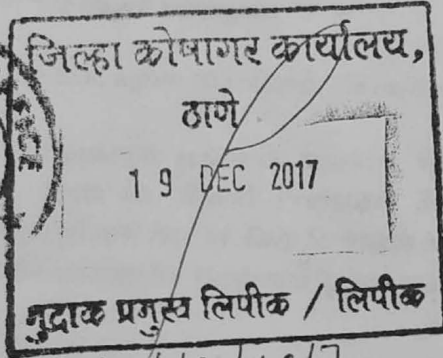 जिल्हा कोषागर कार्यालय,
ठाणे
19 DEC 2017
मुद्रांक प्रमुख लिपीक / लिपीक